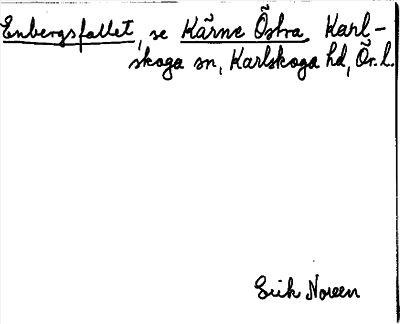 Enbergsfallet, se Kärne Östra Karl-
skoga sn, Karlskoga hd, Ör. l.
Erik Noreen